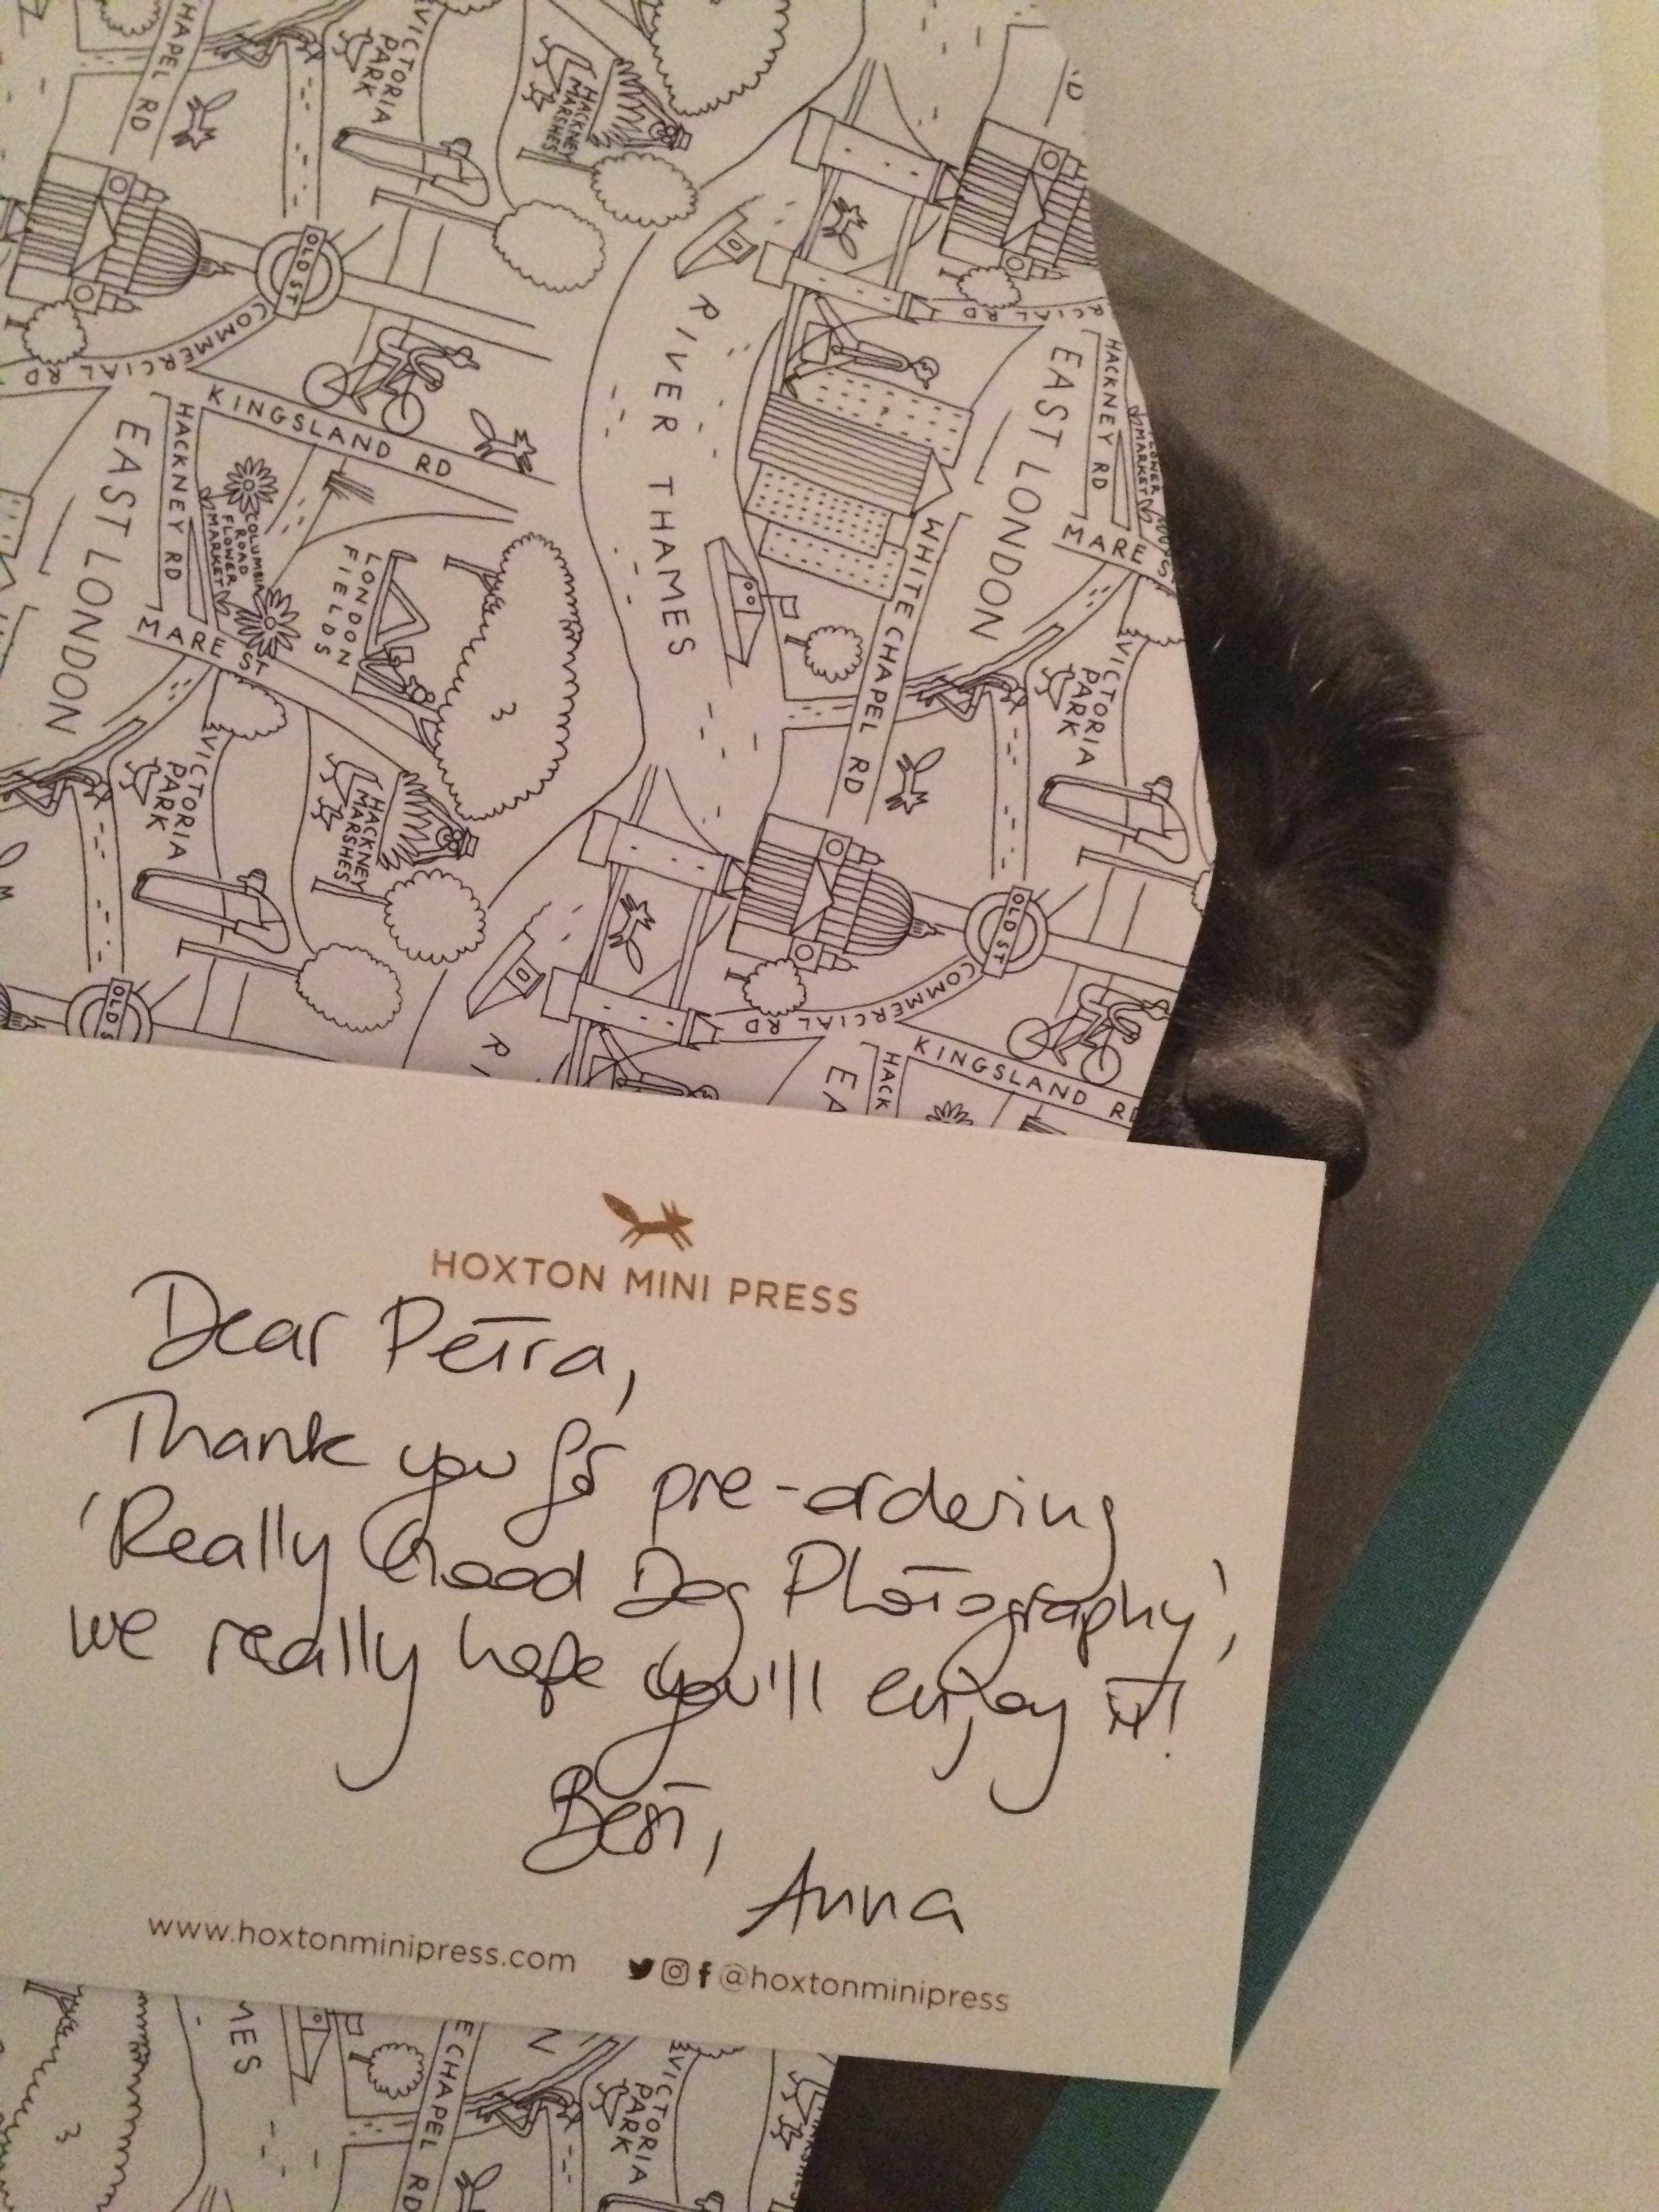 CHAPEL RD
VICTORIA
PARK
HACKNEY
MARSHES
OLD ST
COMMERCIAL RD
KINGSLAND RD
HACKNEY RD
EAST LONDON
COLUMBIA
ROAD
FLOWER
MARKET
MARE ST
LONDON
FIELDS
VICTORIA
PARK
HACKNEY
MARSHES
OLD S
RIVER THAMES
RCIAL RD
EAST LONDON
HACKNEY RD
FLOWER
MARKET
MARE
WHITE CHAPEL RD
VICTORIA
PARK
OLD ST
COMMERCIAL RD
KINGSLAND RD
HACK
EA
RI
HOXTON MINI PRESS
Dear Petra,
Thank you for pre-ordering
'Really Good Dog Photography',
we really hope you'll enjoy it!
Best,
Anna
www.hoxtonminipress.com @hoxtonminipress
MES
ECHAPEL RD
N
VICTORIA
PARK